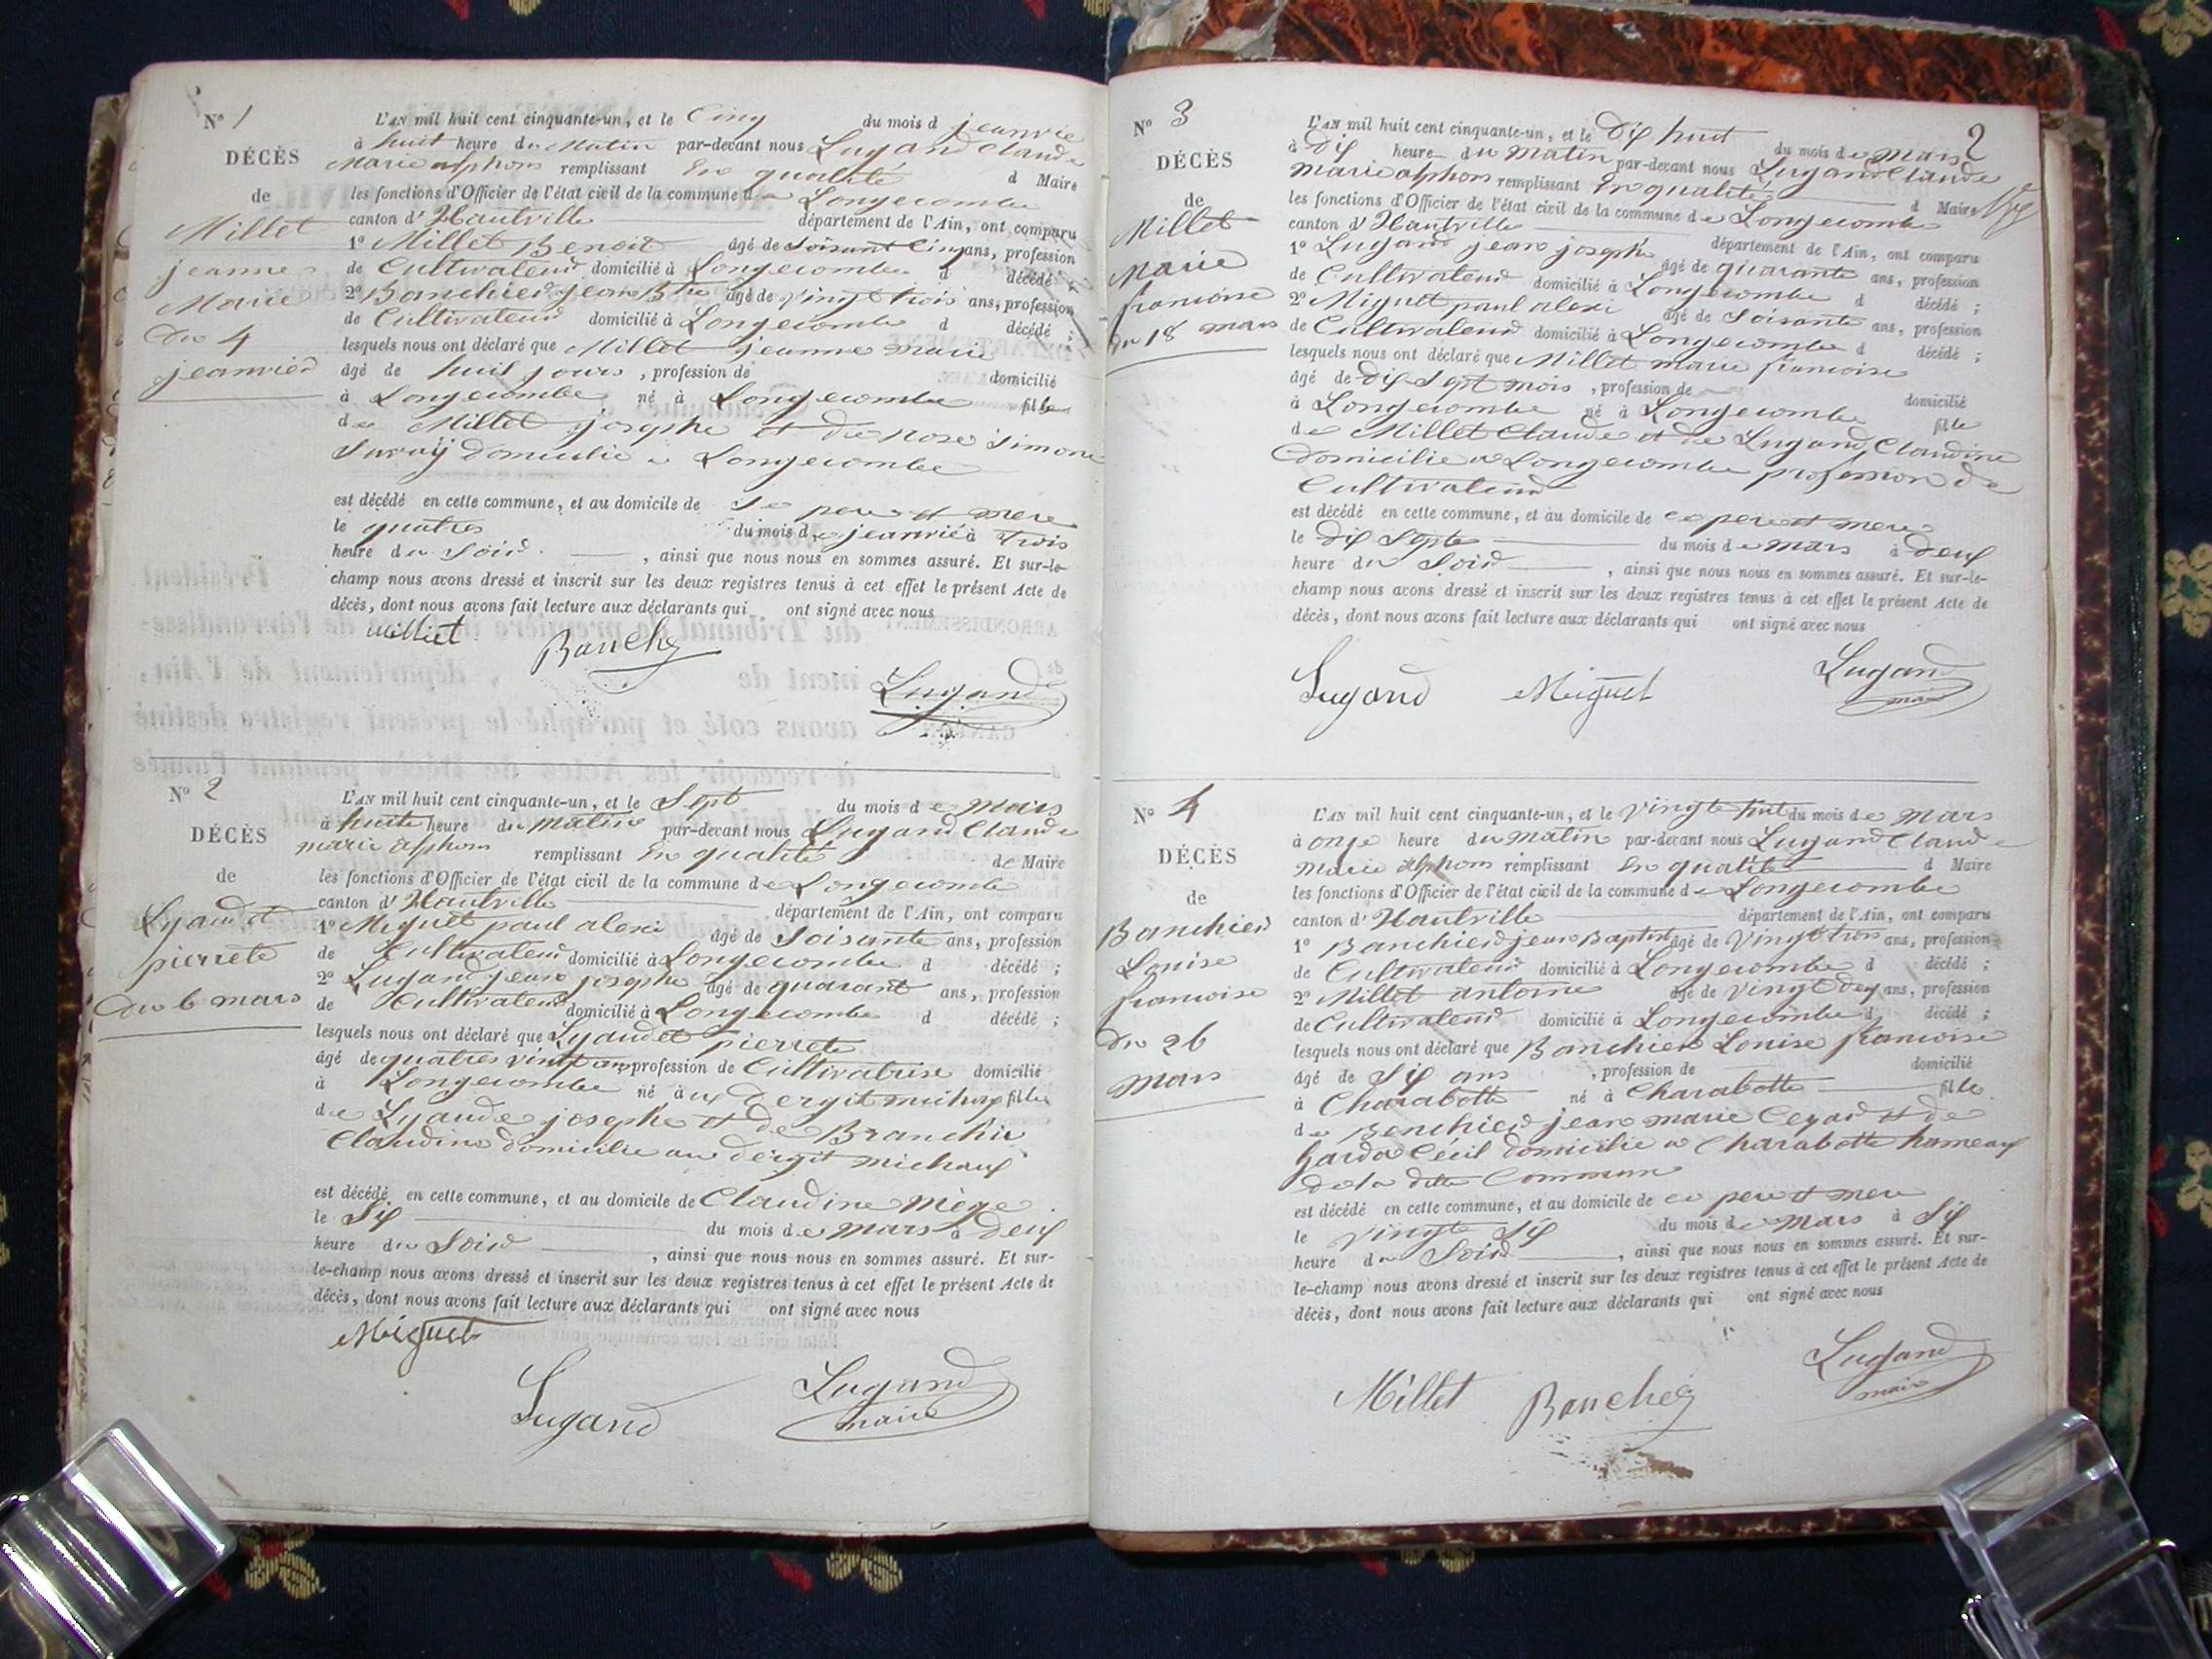 N° 1
DÉCÈS
de
Millet
jeanne
Marie
du 4
jeanvier
L'AN mil huit cent cinquante-un, et le Cinq du mois d jeanvie
à huit heure du Matin par-devant nous Lugand Claude
Marie alphons remplissant En qualité d Maire
les fonctions d'Officier de l'état civil de la commune de Longecombe
canton d'Hautville département de l'Ain, ont comparu
1° Millet Benoit âgé de soisant Cinq ans, profession
de Cultivateur domicilié à Longecombe d décédé ;
2° Banchier jean Bte âgé de vingt trois ans, profession
de Cultivateur domicilié à Longecombe d décédé ;
lesquels nous ont déclaré que Millet jeanne marie
âgé de huit jours , profession de domicilié
à Longecombe né à Longecombe fille
de Millet josephe et de Rose Simone
Savaÿ Domicilie a Longecombe
est décédé en cette commune, et au domicile de se pere et mere
le quatres du mois de jeanvié à Trois
heure du Soir , ainsi que nous nous en sommes assuré. Et sur-le-
champ nous avons dressé et inscrit sur les deux registres tenus à cet effet le présent Acte de
décès, dont nous avons fait lecture aux déclarants qui ont signé avec nous
Milliet Banche
Lugand
N° 2
DÉCÈS
de
Lyaudet
pierrete
du 6 mars
L'AN mil huit cent cinquante-un, et le Sept du mois de Mars
à huite heure du matin par-devant nous Lugand Claude
marie alphons remplissant En qualité de Maire
les fonctions d'Officier de l'état civil de la commune de Longecombe
canton d'Hautville département de l'Ain, ont comparu
1° Miguet paul alexi âgé de Soisante ans, profession
de Cultivateur domicilié à Longecombe d décédé ;
2° Lugand jean josephe âgé de quarant ans, profession
de Cultivateur domicilié à Longecombe d décédé ;
lesquels nous ont déclaré que Lyaudet pierrete
âgé de quatres vint an profession de Cultivatrise domicilié
à Longecombe né à ux Dergit michaux fille
de Lyaude josephe et de Branchie
Claudine domicilie au dergit michaux
est décédé en cette commune, et au domicile de Claudine Mège
le Six du mois de Mars à Deux
heure du Soir , ainsi que nous nous en sommes assuré. Et sur-
le-champ nous avons dressé et inscrit sur les deux registres tenus à cet effet le présent Acte de
décès, dont nous avons fait lecture aux déclarants qui ont signé avec nous
Miguet
Lugand Lugand
maire
2
N° 3
DÉCÈS
de
Millet
Marie
francoise
du 18 mars
L'AN mil huit cent cinquante-un, et le Dix huit du mois de Mars
à Dix heure du Matin par-devant nous Lugand Claude
marie alphons remplissant En qualité d Maire
les fonctions d'Officier de l'état civil de la commune de Longecombe
canton d'Hautville département de l'Ain, ont comparu
1° Lugand jean josephe âgé de quarante ans, profession
de Cultivateur domicilié à Longecombe d décédé ;
2° Miguet paul alexi âgé de Soisante ans, profession
de Cultivateur domicilié à Longecombe d décédé ;
lesquels nous ont déclaré que Millet marie francoise
âgé de Dix Sept mois , profession de domicilié
à Longecombe né à Longecombe fille
de Millet Claude et de Lugand Claudine
Domicilie a Longecombe profession de
Cultivateur
est décédé en cette commune, et au domicile de ce pere et mere
le Dix Septe du mois de Mars à Deux
heure du Soir , ainsi que nous nous en sommes assuré. Et sur-le-
champ nous avons dressé et inscrit sur les deux registres tenus à cet effet le présent Acte de
décès, dont nous avons fait lecture aux déclarants qui ont signé avec nous
Lugand Miguet Lugand
maire
N° 4
DÉCÈS
de
Banchier
Louise
francoise
du 26
mars
L'AN mil huit cent cinquante-un, et le vingte huit du mois de Mars
à onze heure du Matin par-devant nous Lugand Claude
Marie alphons remplissant En qualité d Maire
les fonctions d'Officier de l'état civil de la commune de Longecombe
canton d'Hautville département de l'Ain, ont comparu
1° Banchier jean Baptist âgé de vingt trois ans, profession
de Cultivateur domicilié à Longecombe d décédé ;
2° Millet antoine âgé de vingt deux ans, profession
de Cultivateur domicilié à Longecombe d décédé ;
lesquels nous ont déclaré que Banchier Louise francoise
âgé de Six ans , profession de domicilié
à Charabotte né à Charabotte fille
de Banchier jean marie Cezar et de
Garda Cécil domicilie a Charabotte hameaux
de la dite Commun
est décédé en cette commune, et au domicile de ce pere et mere
le vingte Six du mois de Mars à Six
heure du Soir , ainsi que nous nous en sommes assuré. Et sur-
le-champ nous avons dressé et inscrit sur les deux registres tenus à cet effet le présent Acte de
décès, dont nous avons fait lecture aux déclarants qui ont signé avec nous
Millet Banche Lugand
maire